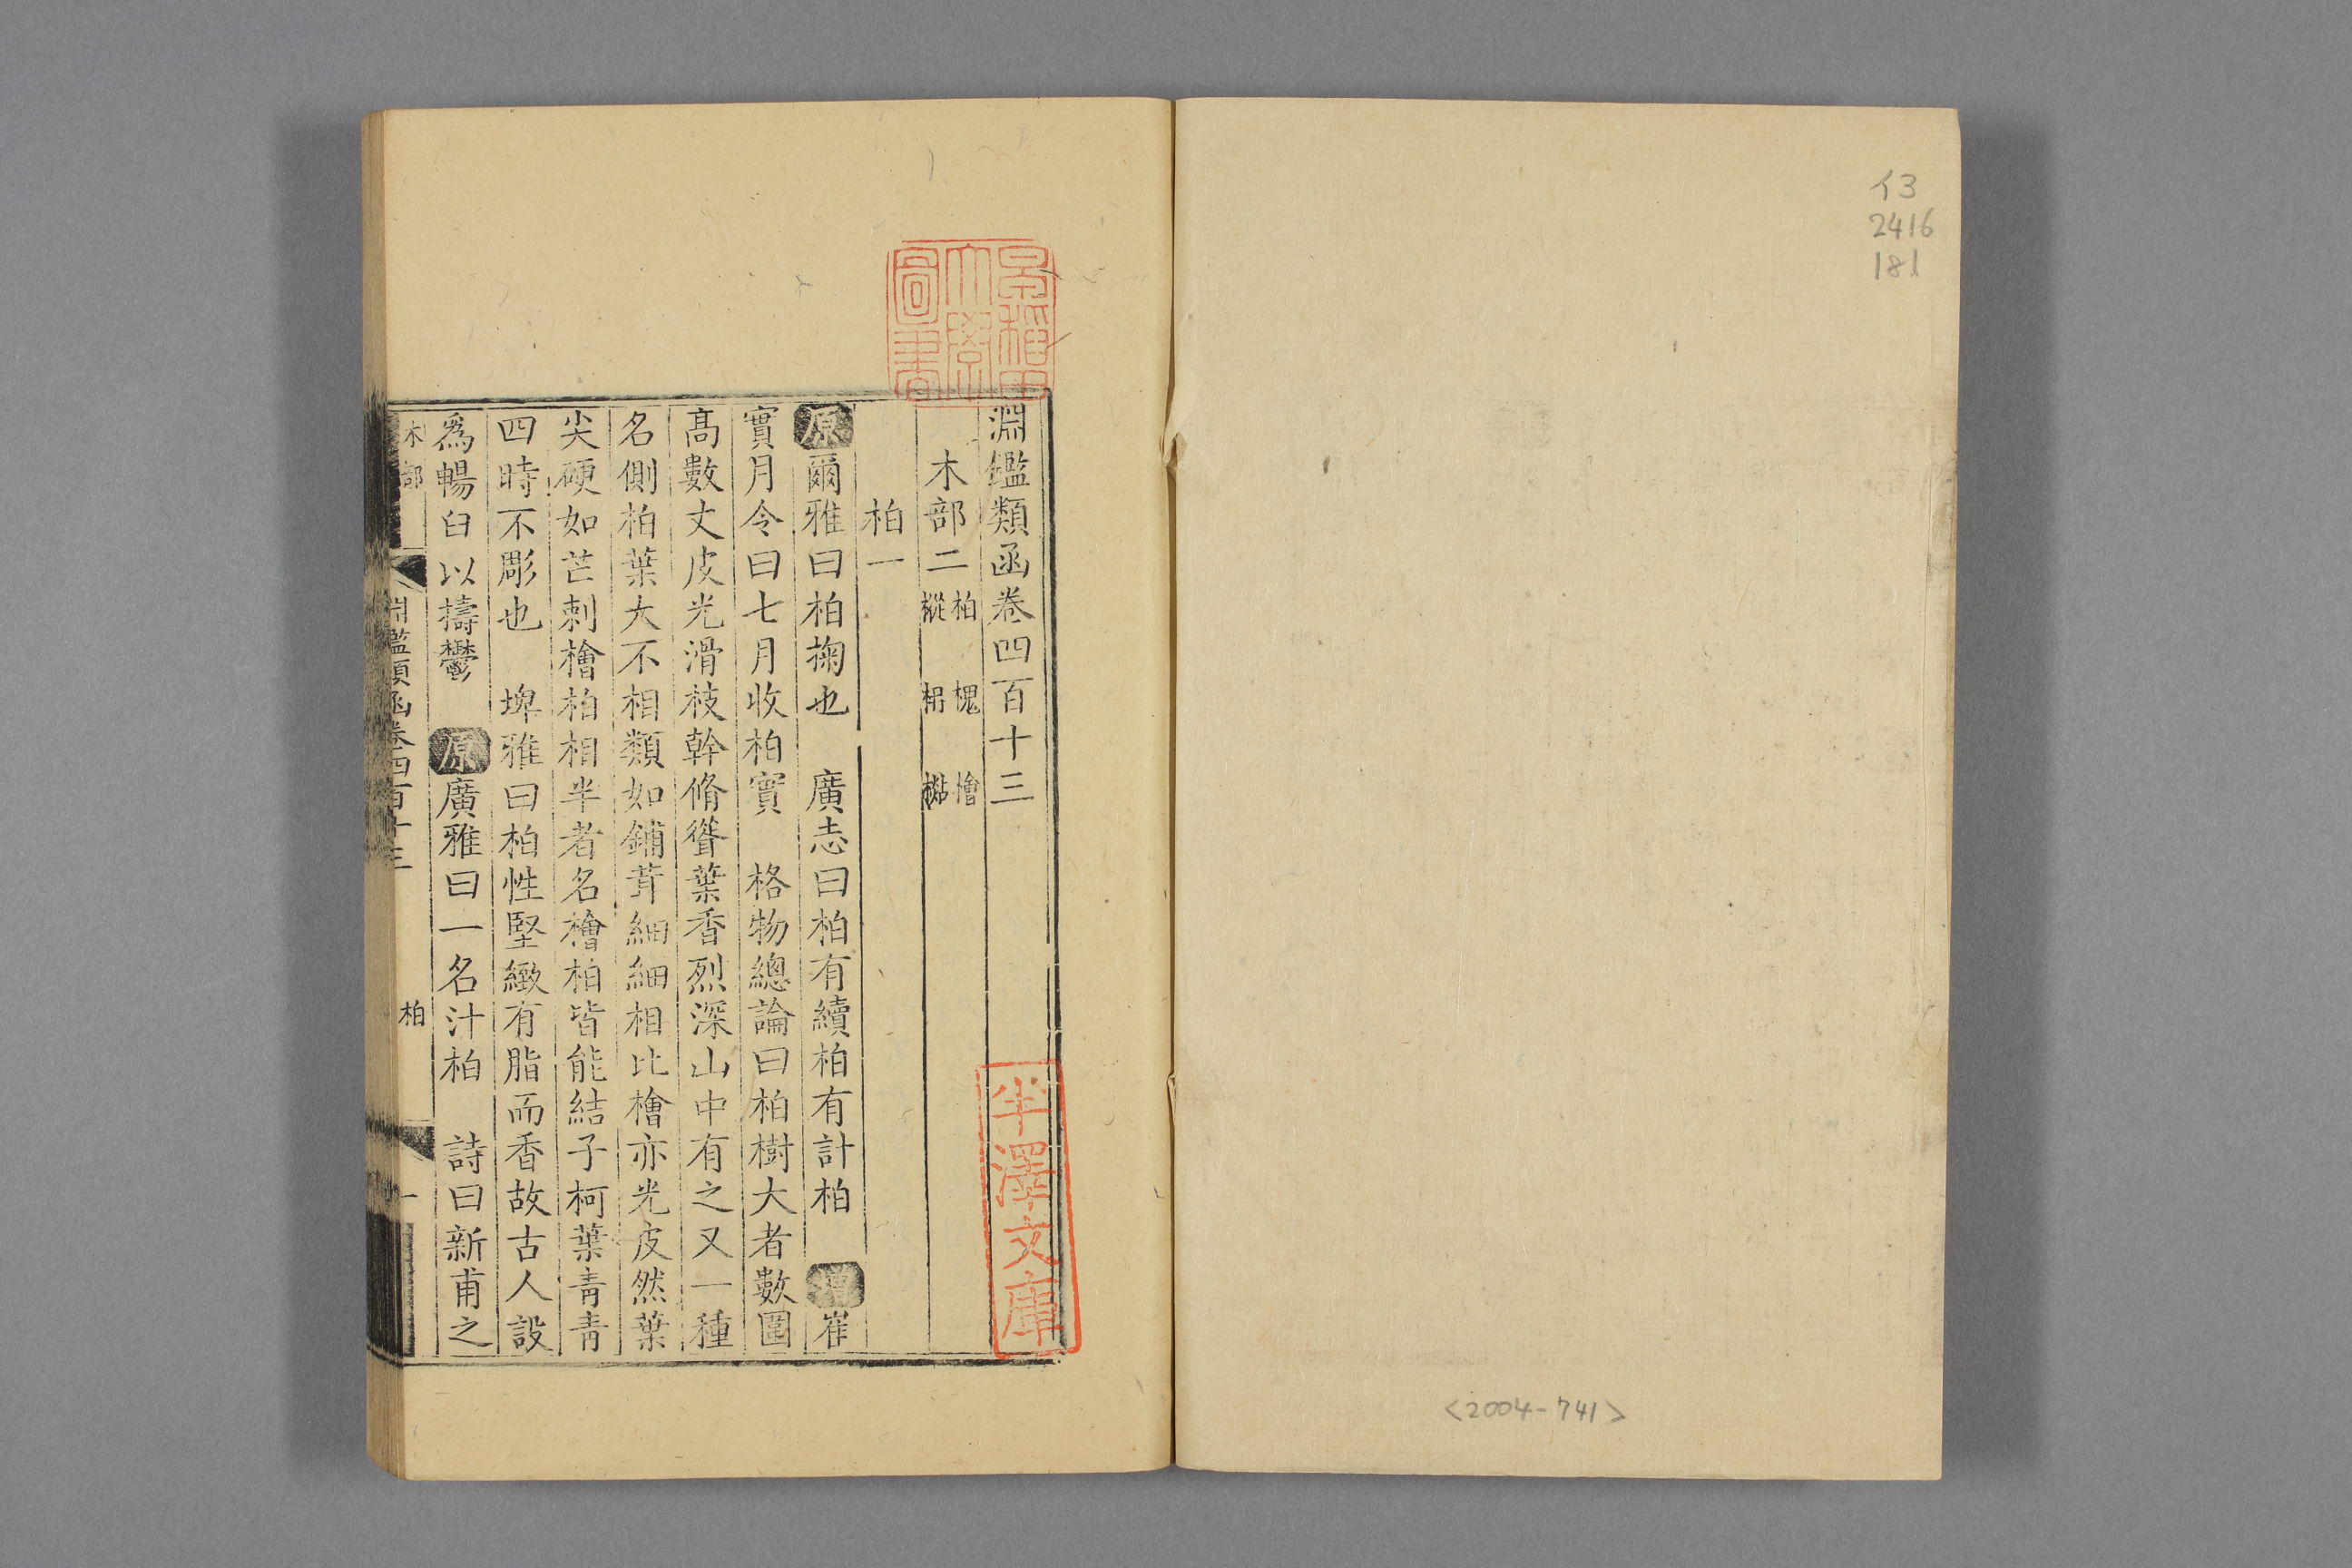 イ3
2416
181
<2004-741>
早稲田
大學
圖書
半澤文庫
淵鑑類函卷四百十三
木部二 柏 槐 檜
樅 梠 㯠
柏一
原爾雅曰柏椈也 廣志曰柏有續柏有計柏 增崔
實月令曰七月收柏實 格物總論曰柏樹大者數圍
高數丈皮光滑枝幹脩聳葉香烈深山中有之又一種
名側柏葉大不相類如鋪茸細細相比檜亦光皮然葉
尖硬如芒刺檜柏相半者名檜柏皆能結子柯葉青青
四時不彫也 埤雅曰柏性堅緻有脂而香故古人設
爲暢臼以擣鬱 原廣雅曰一名汁柏 詩曰新甫之
木部 淵鑑類函卷四百十三 柏 一